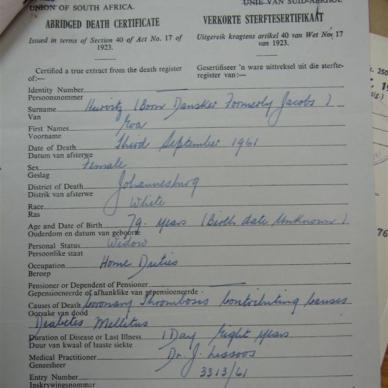 UNION OF SOUTH AFRICA. UNIE VAN SUID-AFRIKA.
ABRIDGED DEATH CERTIFICATE VERKORTE STERFTESERTIFIKAAT
Issued in terms of Section 40 of Act No. 17 of 1923. Uitgereik kragtens artikel 40 van Wet No. 17 van 1923.
Certified a true extract from the death register of:— Gesertifiseer 'n ware uittreksel uit die sterfteregister van:—
Identity Number
Persoonsnommer
Surname Hurvitz (Born Dansker Formerly Jacobs)
Van
First Names Eva
Voorname
Date of Death Third September 1961
Datum van afsterwe
Sex Female
Geslag
District of Death Johannesburg
Distrik van afsterwe
Race White
Ras
Age and Date of Birth 79 years (Birth date Unknown)
Ouderdom en datum van geboorte
Personal Status Widow
Persoonlike staat
Occupation Home Duties
Beroep
Pensioner or Dependent of Pensioner
Gepensioeneerde of afhanklike van gepensioeneerde
Causes of Death Coronary Thrombosis Contributing causes
Oorsake van dood
Diabetes Mellitus
Duration of Disease or Last Illness 1 Day Eight years
Duur van kwaal of laaste siekte
Medical Practitioner Dr. J. Lissoos
Geneesheer
Entry Number 3313/61
Inskrywingsnommer